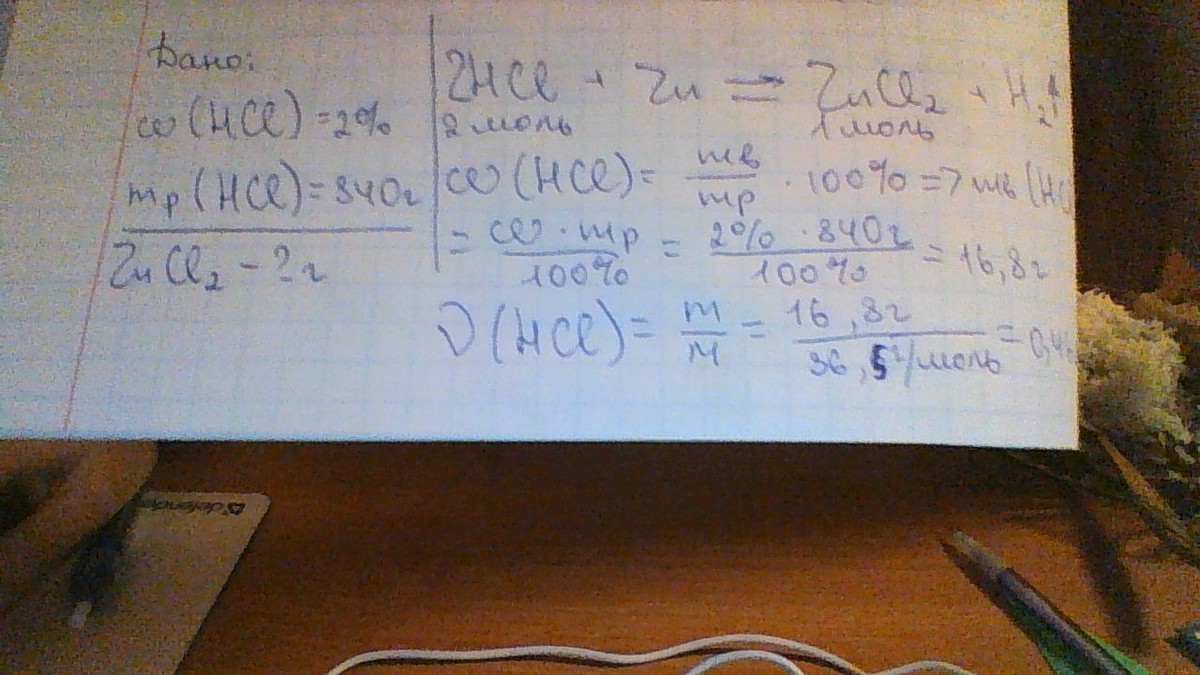 Дано:
ω(HCl)=2%
mр(HCl)=840г
ZnCl2 - ? г
2HCl + Zn = ZnCl2 + H2↑
2 моль 1 моль
ω(HCl)= mв/mр · 100% => mв(HC
= ω · mр/100% = 2% · 840г/100% = 16,8г
ν(HCl)= m/M = 16,8г/36,5г/моль = 0,4
defender